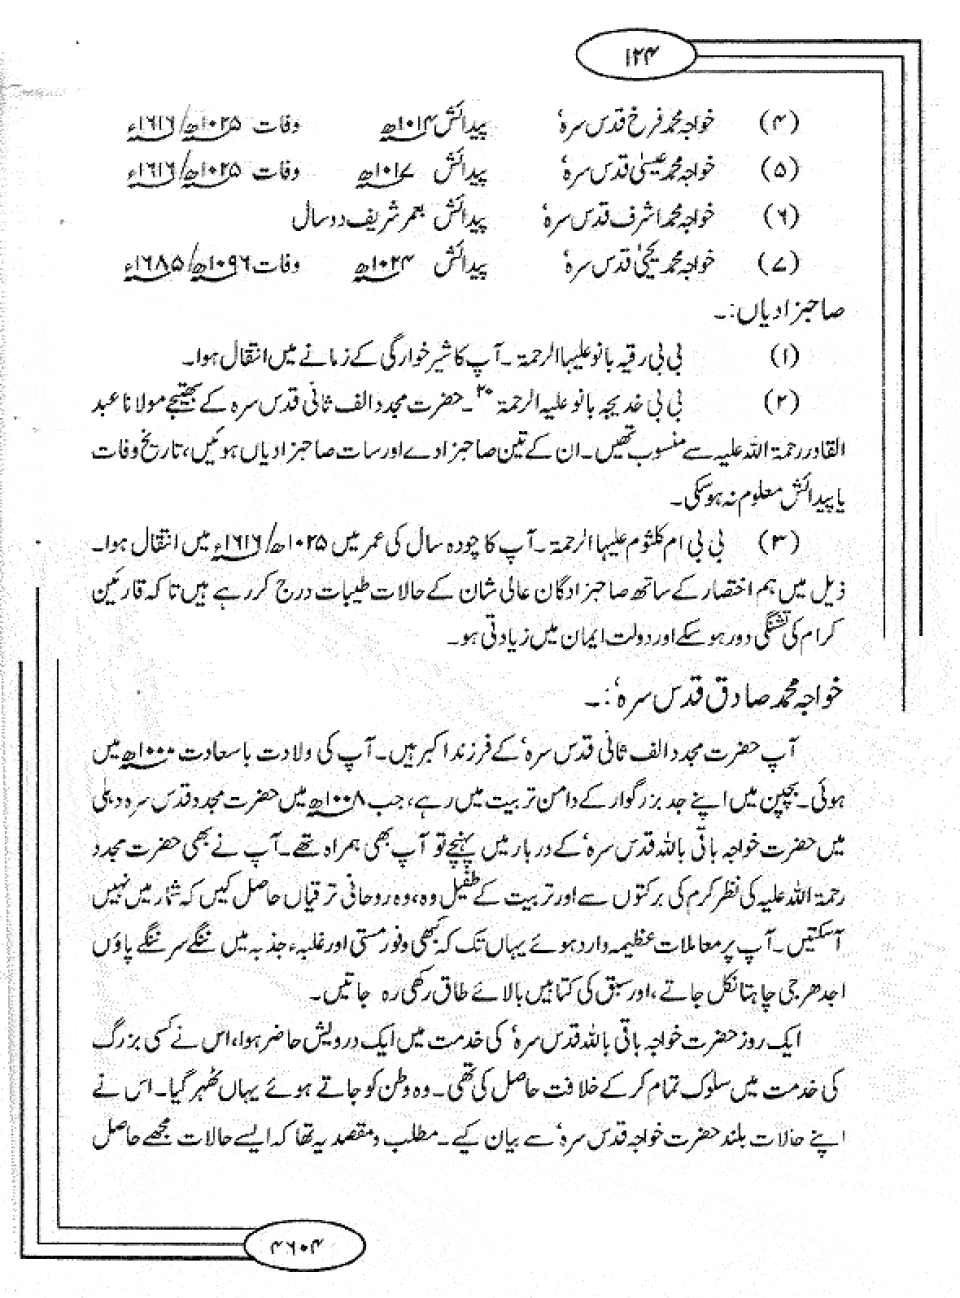 ۱۲۴
(۴) خواجہ محمد فرخ قدس سرہٗ پیدائش ۱۰۱۴ھ وفات ۱۰۲۵ھ/۱۶۱۶ء
(۵) خواجہ محمد عیسیٰ قدس سرہٗ پیدائش ۱۰۱۷ھ وفات ۱۰۲۵ھ/۱۶۱۶ء
(۶) خواجہ محمد اشرف قدس سرہٗ پیدائش بعمر شریف دو سال
(۷) خواجہ محمد یحییٰ قدس سرہٗ پیدائش ۱۰۲۴ھ وفات ۱۰۹۶ھ/۱۶۸۵ء
صاحبزادیاں:۔
(۱) بی بی رقیہ بانو علیہا الرحمۃ۔ آپ کا شیر خوارگی کے زمانے میں انتقال ہوا۔
(۲) بی بی خدیجہ بانو علیہ الرحمۃ ۳۰۔ حضرت مجدد الف ثانی قدس سرہ کے بھتیجے مولانا عبد
القادر رحمۃ اللہ علیہ سے منسوب تھیں۔ ان کے تین صاحبزادے اور سات صاحبزادیاں ہوئیں، تاریخ وفات
یا پیدائش معلوم نہ ہو سکی۔
(۳) بی بی ام کلثوم علیہا الرحمۃ۔ آپ کا چودہ سال کی عمر میں ۱۰۲۵ھ/۱۶۱۶ء میں انتقال ہوا۔
ذیل میں ہم اختصار کے ساتھ صاحبزادگان عالی شان کے حالات طیبات درج کر رہے ہیں تاکہ قارئین
کرام کی تشنگی دور ہو سکے اور دولت ایمان میں زیادتی ہو۔
خواجہ محمد صادق قدس سرہٗ:۔
آپ حضرت مجدد الف ثانی قدس سرہٗ کے فرزند اکبر ہیں۔ آپ کی ولادت با سعادت ۱۰۰۰ھ میں
ہوئی۔ بچپن میں اپنے جد بزرگوار کے دامن تربیت میں رہے، جب ۱۰۰۸ھ میں حضرت مجدد قدس سرہ دہلی
میں حضرت خواجہ باقی باللہ قدس سرہٗ کے دربار میں پہنچے تو آپ بھی ہمراہ تھے۔ آپ نے بھی حضرت مجدد
رحمۃ اللہ علیہ کی نظر کرم کی برکتوں سے اور تربیت کے طفیل وہ، وہ روحانی ترقیاں حاصل کیں کہ شمار میں نہیں
آسکتیں۔ آپ پر معاملات عظیمہ وارد ہوئے یہاں تک کہ کبھی وفور مستی اور غلبۂ جذبہ میں ننگے سر ننگے پاؤں
جدھر جی چاہتا نکل جاتے، اور سبق کی کتابیں بالائے طاق رکھی رہ جاتیں۔
ایک روز حضرت خواجہ باقی باللہ قدس سرہٗ کی خدمت میں ایک درویش حاضر ہوا، اس نے کسی بزرگ
کی خدمت میں سلوک تمام کر کے خلافت حاصل کی تھی۔ وہ وطن کو جاتے ہوئے یہاں ٹھہر گیا۔ اس نے
اپنے حالات بلند حضرت خواجہ قدس سرہٗ سے بیان کیے۔ مطلب و مقصد یہ تھا کہ ایسے حالات مجھے حاصل
۴۶۰۴